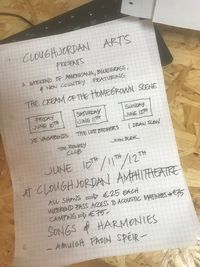 CLOUGHJORDAN ARTS
PRESENTS
A WEEKEND OF AMERICANA, BLUEGRASS,
& NEW COUNTRY FEATURING
THE CREAM OF THE HOMEGROWN SCENE
FRIDAY
JUNE 10TH
SATURDAY
JUNE 11TH
SUNDAY
JUNE 12TH
YE VAGABONDS
THE LOST BROTHERS
I DRAW SLOW
THE REMEDY
CLUB
JOHN BLEK
JUNE 10TH/11TH/12TH
AT CLOUGHJORDAN AMPHITHEATRE
ALL SHOWS €25 EACH
WEEKEND PASS (ACCESS TO ACOUSTIC MATINEES) €75
CAMPING
SONGS & HARMONIES
- AMUIGH FAOIN SPÉIR -